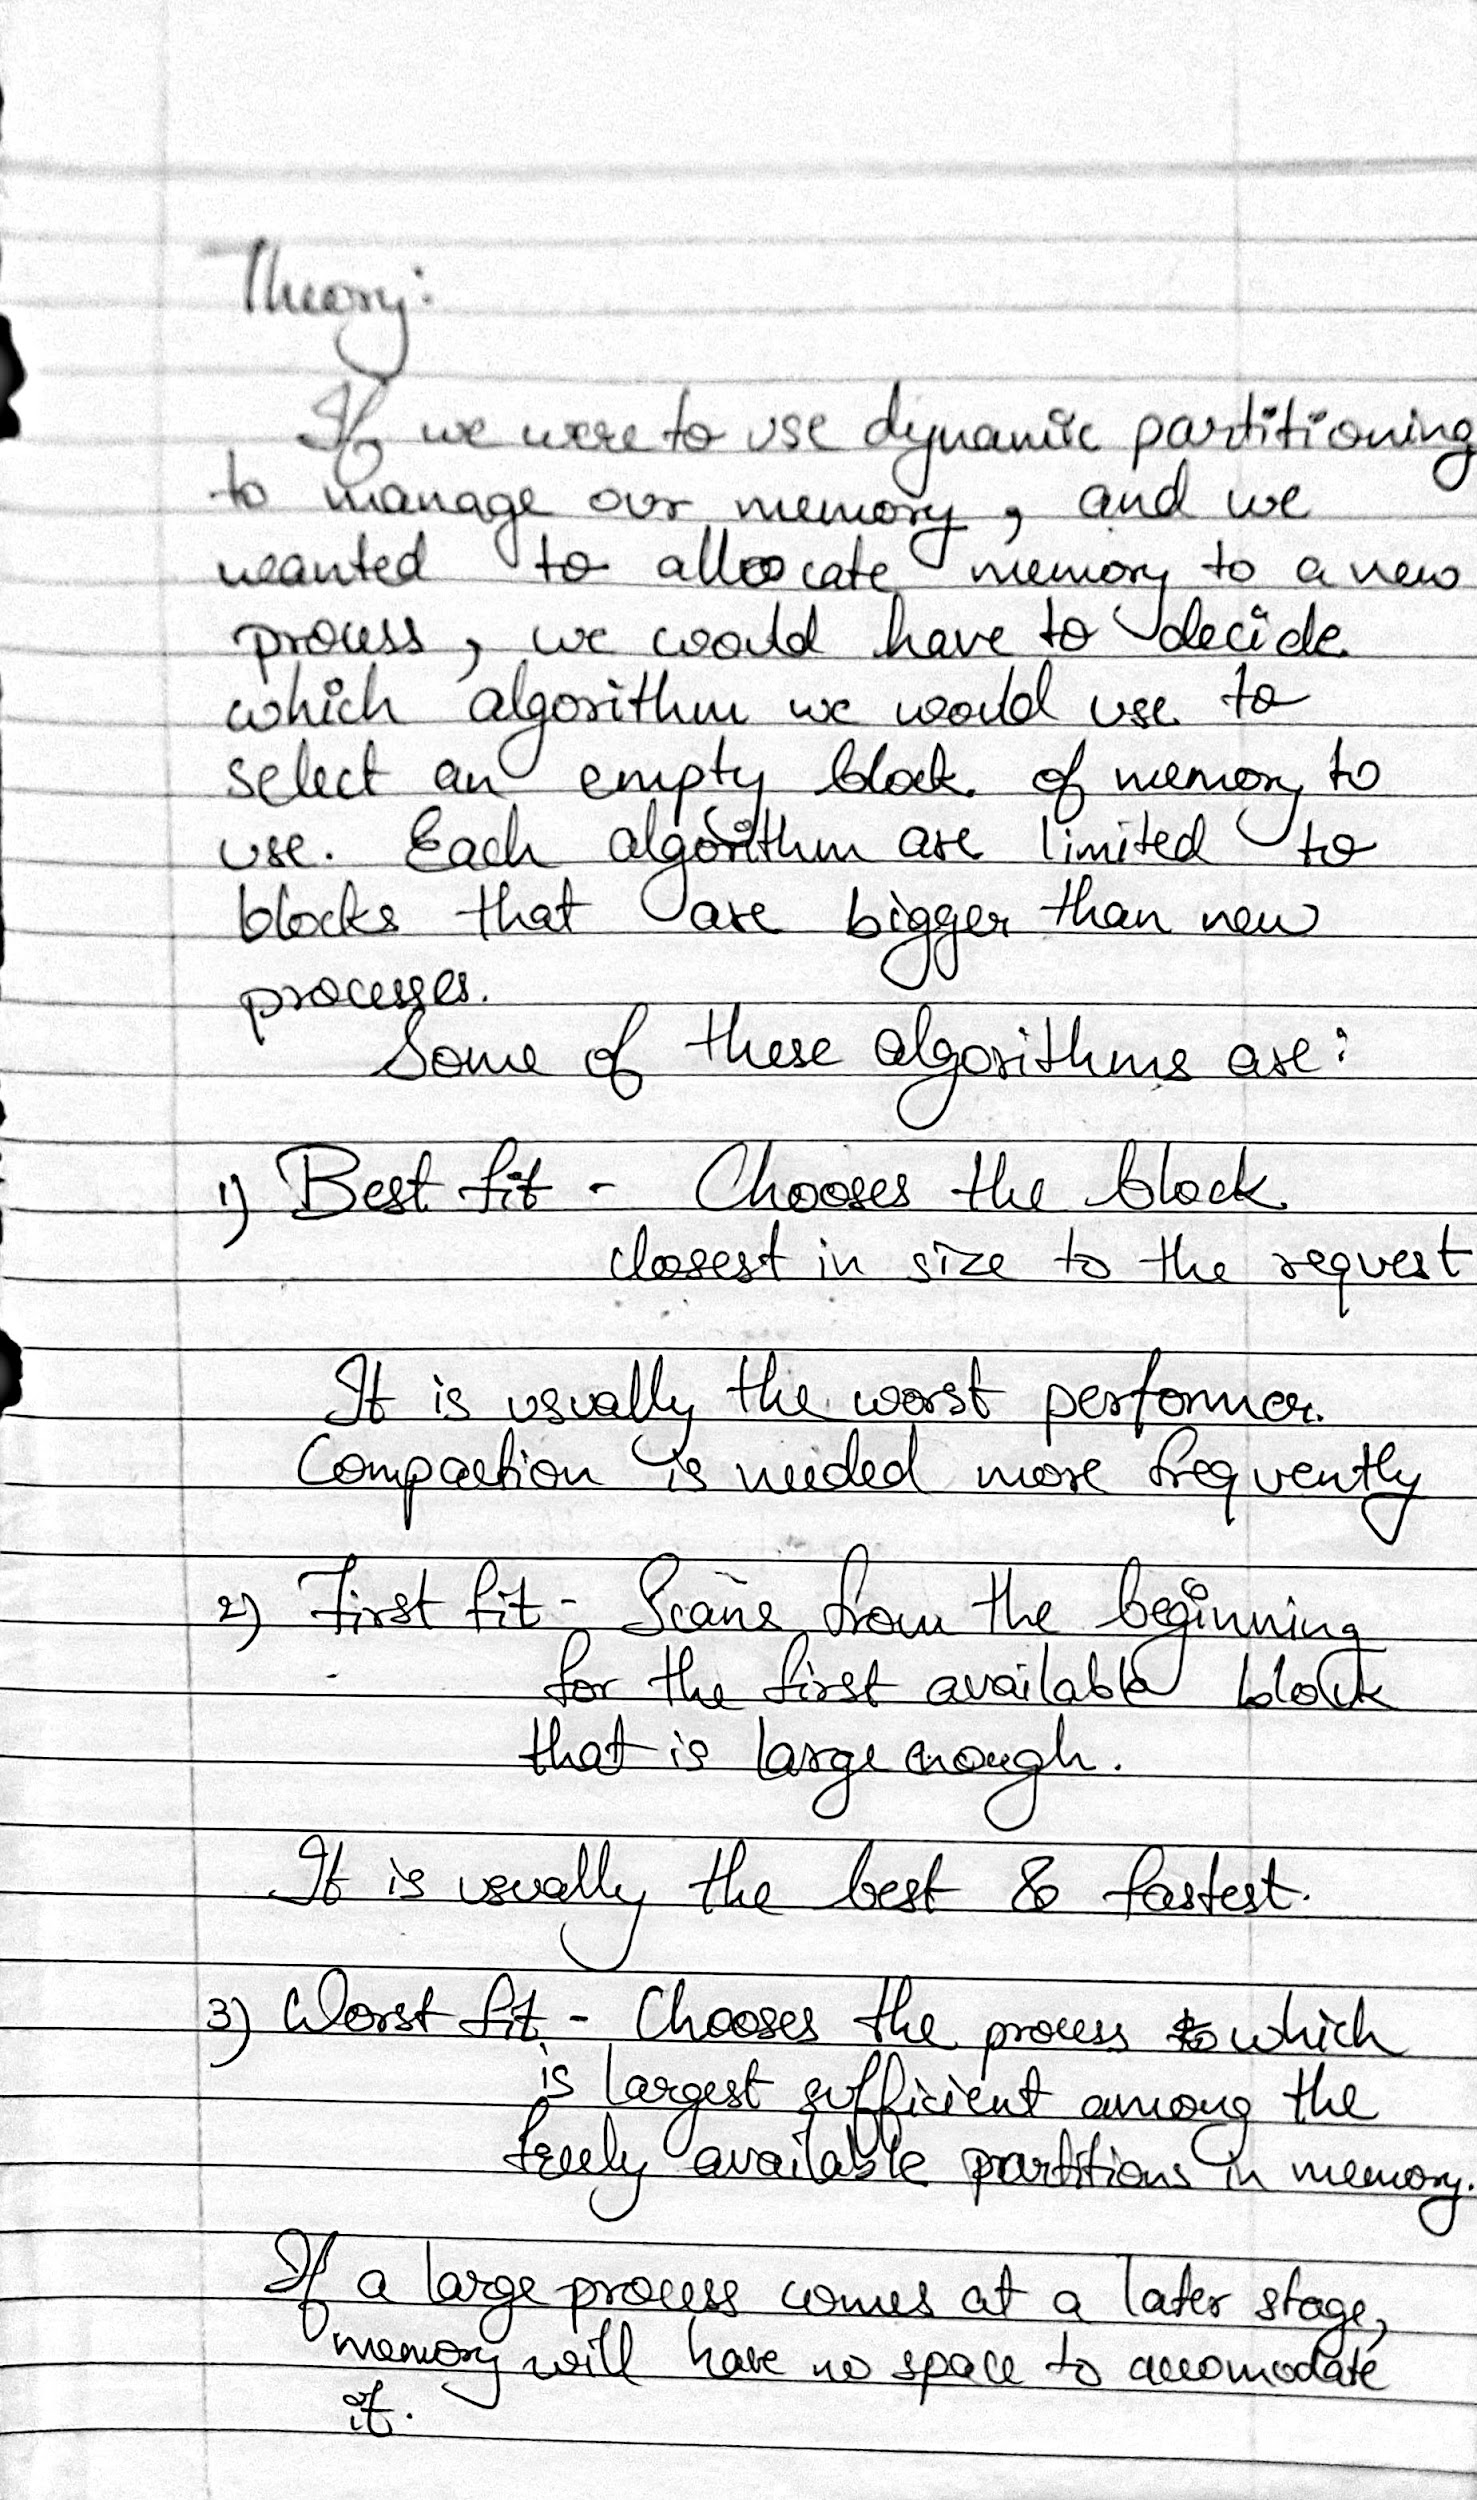 Theory:
If we were to use dynamic partitioning
to manage our memory, and we
wanted to allocate memory to a new
process, we would have to decide
which algorithm we would use to
select an empty block of memory to
use. Each algorithm are limited to
blocks that are bigger than new
processes.
Some of these algorithms are:
1) Best fit - Chooses the block
closest in size to the request
It is usually the worst performer.
Compaction is needed more frequently
2) First fit - Scans from the beginning
for the first available block
that is large enough.
It is usually the best & fastest.
3) Worst fit - Chooses the process which
is largest sufficient among the
freely available partitions in memory.
If a large process comes at a later stage,
memory will have no space to accomodate
it.